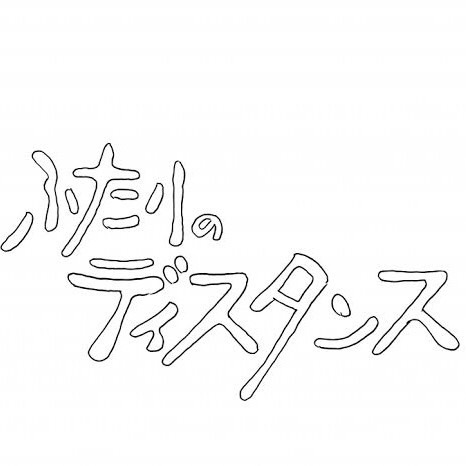 ふたりの
ディスタンス